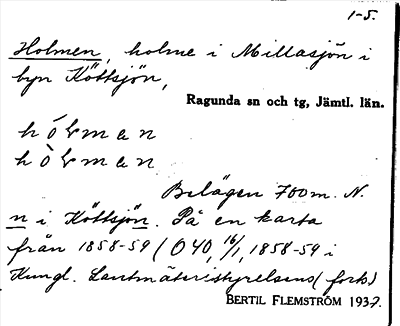 1-5.
Holmen, holme i Millasjön i
byn Köttsjön,
Ragunda sn och tg, Jämtl. län.
hólman
hòlman
Belägen 700 m. N.
n i Köttsjön. På en karta
från 1858-59 (O40, 16/1, 1858-59 i
Kungl. Lantmäteristyrelsens (forts)
BERTIL FLEMSTRÖM 1937.